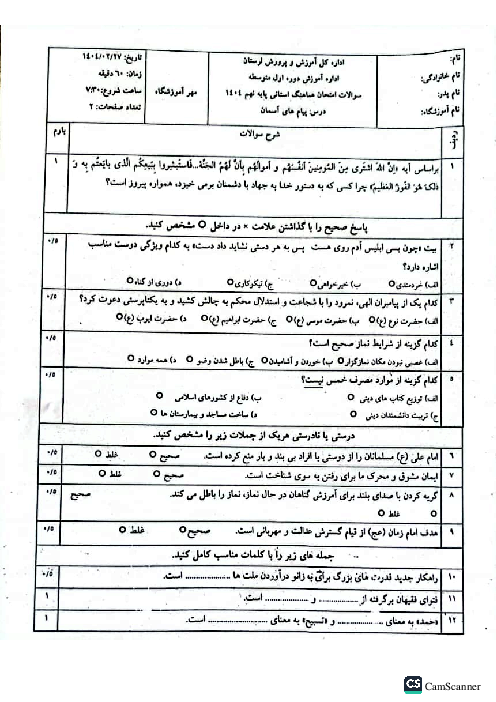 نام:
نام خانوادگی:
نام پدر:
نام آموزشگاه:
اداره کل آموزش و پرورش لرستان
اداره آموزش دوره اول متوسطه
سوالات امتحان هماهنگ استانی پایه نهم ۱۴۰۴
درس: پیام های آسمان
مهر آموزشگاه:
تاریخ: ۱۴۰۴/۰۲/۲۷
زمان: ۶۰ دقیقه
ساعت شروع: ۷:۳۰
تعداد صفحات: ۲
ردیف
شرح سوالات
بارم
۱ براساس آیه «إِنَّ اللّهَ اشتَرى مِنَ المُؤمِنينَ أَنفُسَهُم وَ أموالَهُم بِأَنَّ لَهُمُ الجَنَّةَ...فَاستَبشِروا بِبَيعِكُمُ الَّذى بايَعتُم بِهِ وَ ۱
ذلِكَ هُوَ الفَوزُ العَظيمُ» چرا کسی که به دستور خدا به جهاد با دشمنان برمی خیزد، همواره پیروز است؟
پاسخ صحیح را با گذاشتن علامت × در داخل ○ مشخص کنید.
۲ بیت «چون بسی ابلیس آدم روی هست پس به هر دستی نشاید داد دست» به کدام ویژگی دوست مناسب ۰/۵
اشاره دارد؟
الف) خردمندی ○ ب) خیرخواهی ○ ج) نیکوکاری ○ د) دوری از گناه ○
۳ کدام یک از پیامبران الهی، نمرود را با شجاعت و استدلال محکم به چالش کشید و به یکتاپرستی دعوت کرد؟ ۰/۵
الف) حضرت نوح (ع) ○ ب) حضرت موسی (ع) ○ ج) حضرت ابراهیم (ع) ○ د) حضرت ایوب (ع) ○
۴ کدام گزینه از شرایط نماز صحیح است؟ ۰/۵
الف) غصبی نبودن مکان نمازگزار ○ ب) خوردن و آشامیدن ○ ج) باطل شدن وضو ○ د) همه موارد ○
۵ کدام گزینه از موارد مصرف خمس نیست؟ ۰/۵
الف) توزیع کتاب های دینی ○ ب) دفاع از کشورهای اسلامی ○
ج) تربیت دانشمندان دینی ○ د) ساخت مساجد و بیمارستان ها ○
درستی یا نادرستی هریک از جملات زیر را مشخص کنید.
۶ امام علی (ع) مسلمانان را از دوستی با افراد بی بند و بار منع کرده است. صحیح ○ غلط ○ ۰/۵
۷ ایمان مشوق و محرک ما برای رفتن به سوی شناخت است. صحیح ○ غلط ○ ۰/۵
۸ گریه کردن با صدای بلند برای آمرزش گناهان در حال نماز، نماز را باطل می کند. صحیح ۰/۵
○ غلط ○
۹ هدف امام زمان (عج) از قیام گسترش عدالت و مهربانی است. صحیح ○ غلط ○ ۰/۵
جمله های زیر را با کلمات مناسب کامل کنید.
۱۰ راهکار جدید قدرت های بزرگ برای به زانو درآوردن ملت ها .................... است. ۰/۵
۱۱ فتوای فقیهان برگرفته از .................. و .................. است. ۱
۱۲ «حمد» به معنای .................. و «تسبیح» به معنای .................. است. ۱
CS CamScanner